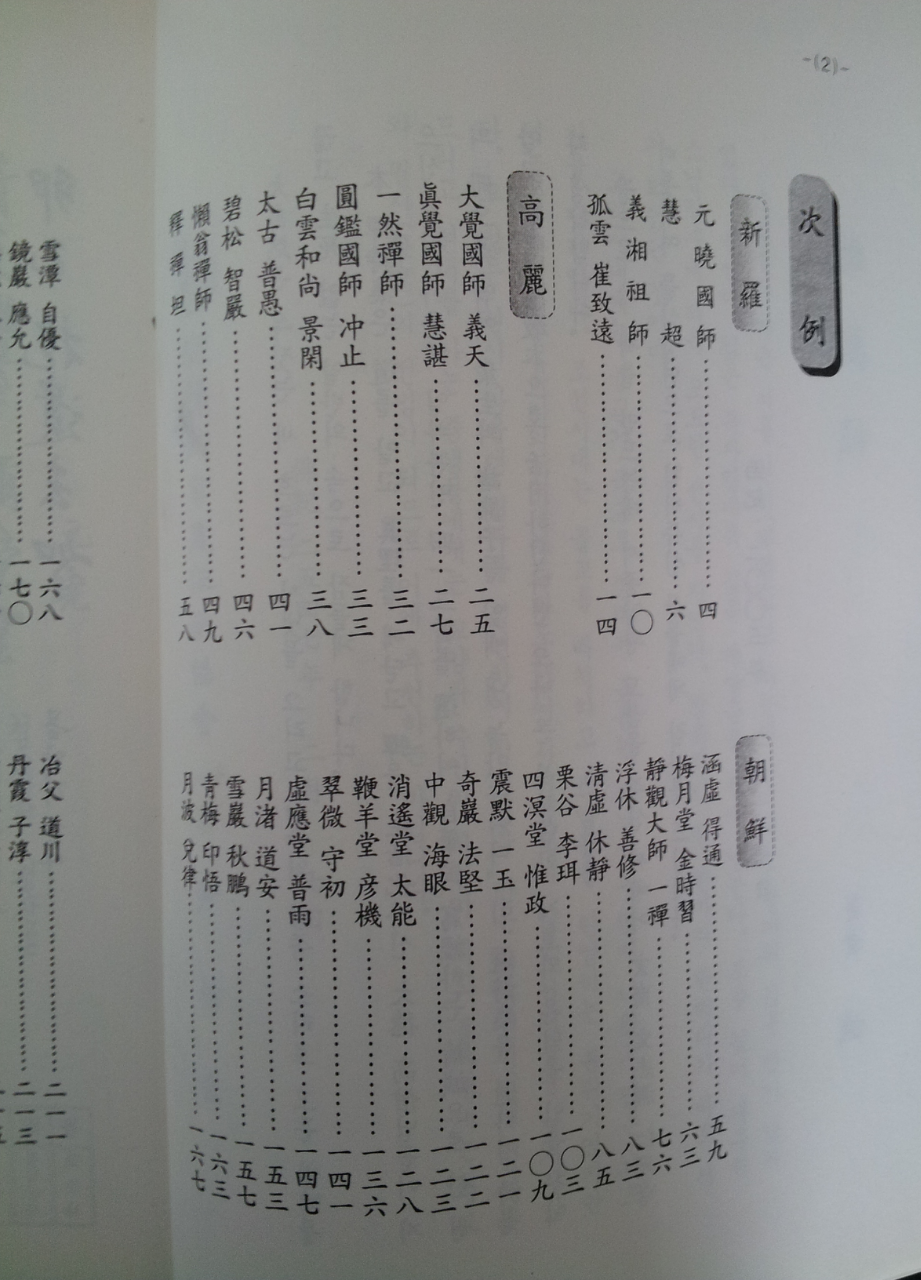 ~(2)~
次例
新羅
元曉國師 四
慧超 六
義湘祖師 一〇
孤雲 崔致遠 一四
高麗
大覺國師 義天 二五
眞覺國師 慧諶 二七
一然禪師 三二
圓鑑國師 冲止 三三
白雲和尚 景閑 三八
太古 普愚 四一
碧松 智嚴 四六
懶翁禪師 四九
坦 五八
朝鮮
涵虛 得通 五九
梅月堂 金時習 六三
靜觀大師 一禪 七六
浮休 善修 八三
清虛 休靜 八五
栗谷 李珥 一〇三
四溟堂 惟政 一〇九
震默 一玉 一二一
奇巖 法堅 一二二
中觀 海眼 一二三
消遙堂 太能 一二八
鞭羊堂 彦機 一三六
翠微 守初 一四一
虛應堂 普雨 一四七
月渚 道安 一五三
雪巖 秋鵬 一五七
青梅 印悟 一六三
月波 兌律 一六七
雪潭 自優 一六八
鏡巖 應允 一七〇
冶父 道川 二一一
丹霞 子淳 二一三